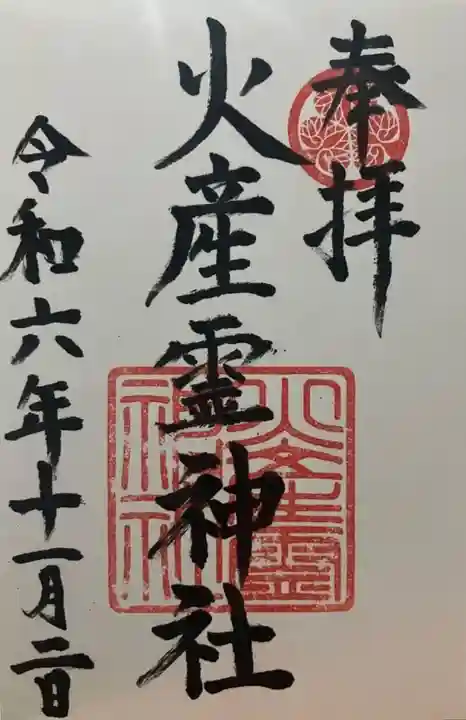 奉拝
火産霊神社
火産霊
神社
令和六年十一月二日